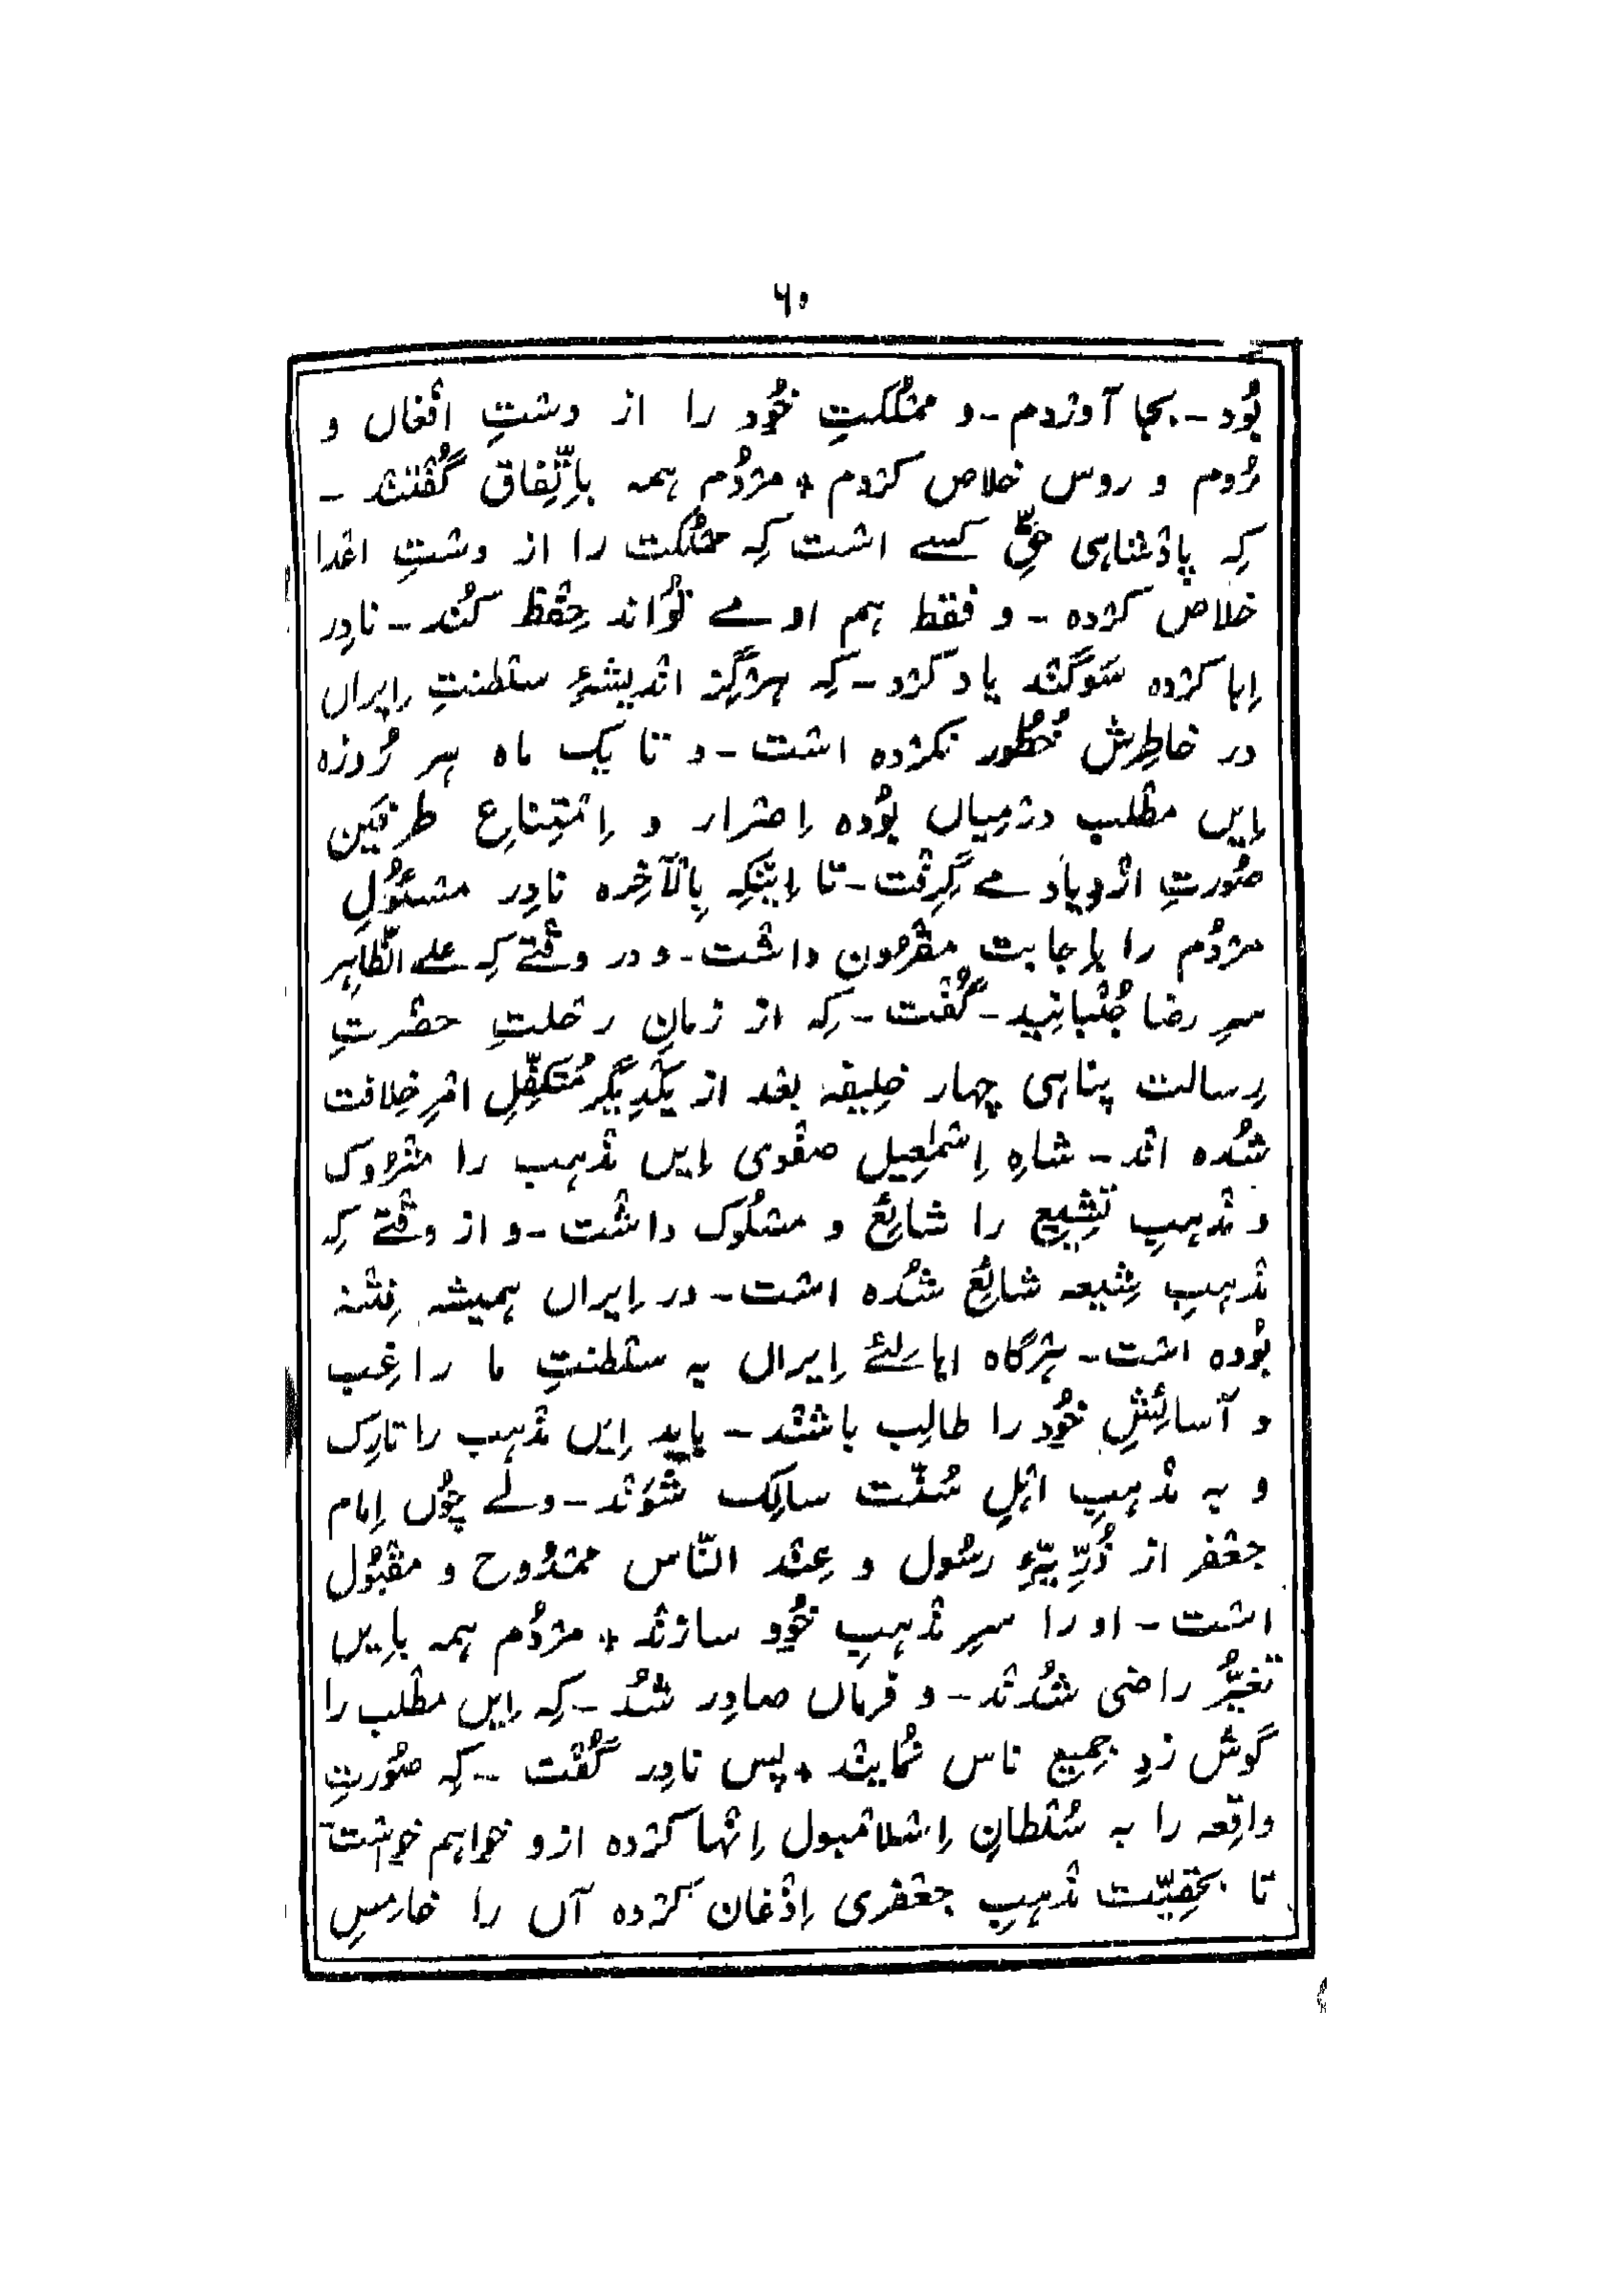 ۶۰
بُود - بجا آوردم - و مملکتِ خُود را از دستِ افغاں و
رُوم و روس خلاص کردم + مردُم ہمہ باِتِّفاق گُفتند -
کِہ پادشاہی حقِّ کسے است کِہ مملکت را از دستِ اعدا
خلاص کردہ - و فقط ہم او مے تُواند حِفظ کُند - نادِر
اِبا کردہ سَوگند یاد کرد - کِہ ہرگِز اندیشۂ سلطنتِ اِیراں
در خاطِرش خُطُور نکردہ است - و تا یک ماہ ہر رُوزہ
اِیں مطلب درمِیاں بُودہ اِصرار و اِمتِناعِ طرفَین
صُورتِ ازدِیاد مے گِرِفت - تا اِینکِہ بِالآخِرہ نادِر مسئُولِ
مردُم را باِجابت مقرُون داشت - و در وقتے کِہ علے الظّاہِر
سرِ رضا جُنبانِید - گُفت - کِہ از زمانِ رحلتِ حضرتِ
رِسالت پناہی چہار خلِیفہ بعد از یکدِیگر مُتکفِّلِ امرِ خِلافت
شُدہ اند - شاہِ اِسمٰعِیل صفوی اِیں مذہب را مترُوک
و مذہبِ تشیّع را شائِع و مسلُوک داشت - و از وقتے کِہ
مذہبِ شِیعہ شائِع شُدہ است - در اِیراں ہمیشہ فِتنہ
بُودہ است - ہرگاہ اہالئے اِیراں بہ سلطنتِ ما راغِب
و آسائِشِ خُود را طالِب باشند - باید اِیں مذہب را تارِک
و بہ مذہبِ اہلِ سُنّت سالِک شَوند - ولے چُوں اِمام
جعفر از ذُرِّیّۂِ رسُول و عِند النّاس ممدُوح و مقبُول
است - او را سرِ مذہبِ خُود سازند + مردُم ہمہ باِیں
تغیُّر راضی شُدند - و فرماں صادِر شُد - کِہ اِیں مطلب را
گوش زدِ جمِیعِ ناس نُمایند + پس نادِر گُفت - کِہ صُورتِ
واقِعہ را بہ سُلطانِ اِسلامبول اِنہا کردہ ازو خواہم خواست
تا بحقِیّت مذہبِ جعفری اِذعان کردہ آں را خامِسِ